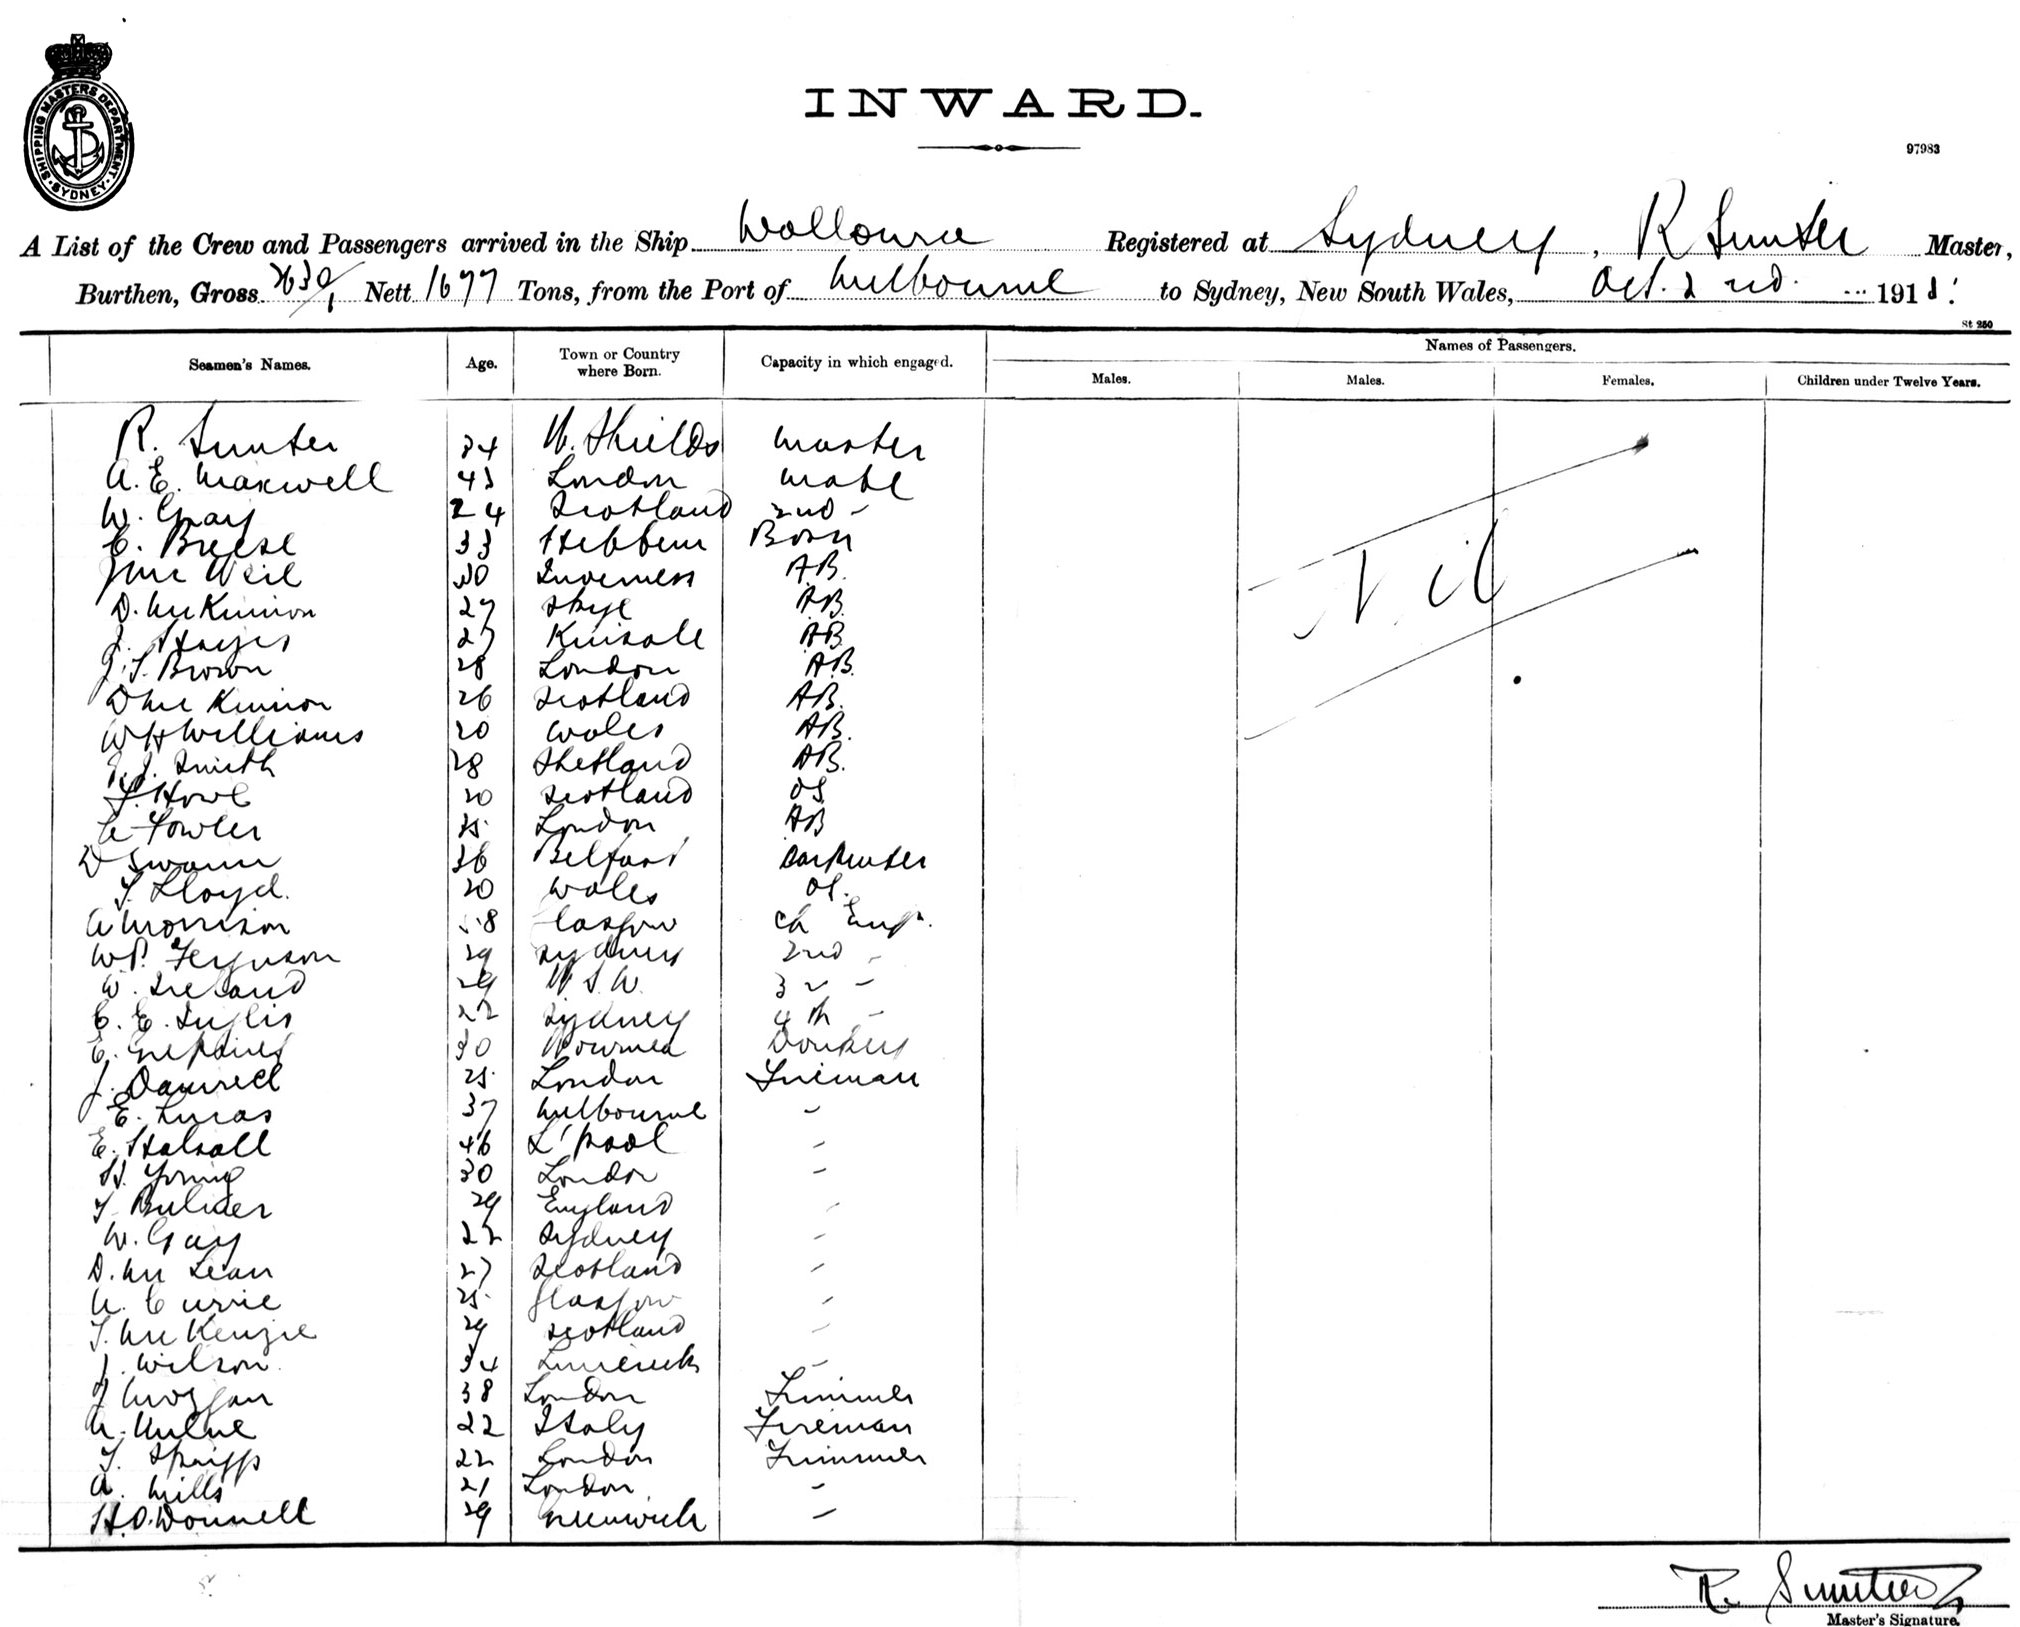 SHIPPING MASTERS DEPARTMENT · SYDNEY ·
INWARD.
97983
A List of the Crew and Passengers arrived in the Ship Registered at Sydney, R Sunter Master,
Burthen, Gross Nett 1677 Tons, from the Port of Melbourne to Sydney, New South Wales, Oct. 2nd. 191
St 250
Seamen's Names. Age. Town or Country where Born. Capacity in which engaged. Names of Passengers.
Males. Males. Females. Children under Twelve Years.
R. Sunter 34 N. Shields Master
A. E. Maxwell 43 London Mate
W. Gray 24 Scotland 2nd -
C. Breese 33 Hebburn Bosn
Weil 30 Inverness A.B.
D. McKinnon 27 Skye A.B.
J. Hayes 27 Kinsale A.B.
J. S. Brown 28 London A.B.
D McKinnon 26 Scotland A.B.
W H Williams 20 Wales A.B.
J. Smith 28 Shetland A.B.
Howe 20 Scotland OS
Fowler London AB
D Swann 36 Belfast Carpenter
T. Lloyd. 20 Wales OS.
A Morrison Glasgow Ch Engr.
W.P. Ferguson 29 Sydney 2nd -
W. Ireland 29 N.S.W. 3 -
C. E. Inglis 22 Sydney 4th -
E. 30 Noumea Donkey
J. 25 London Fireman
E. Lucas 37 Melbourne -
E. Halsall 46 L'pool -
H. Young 30 London -
T 29 England -
W. Gay 22 Sydney -
D. McLean 27 Scotland -
A. Currie 25 Glasgow -
T. McKenzie 29 Scotland -
J. Wilson. 34 Limerick -
J Morgan 38 London Trimmer
A. Milne 22 Italy Fireman
T. Spriggs 22 London Trimmer
A. Mills 21 London -
H. O.Donnell 29 Greenwich -
Nil
R. Sunter
Master's Signature.